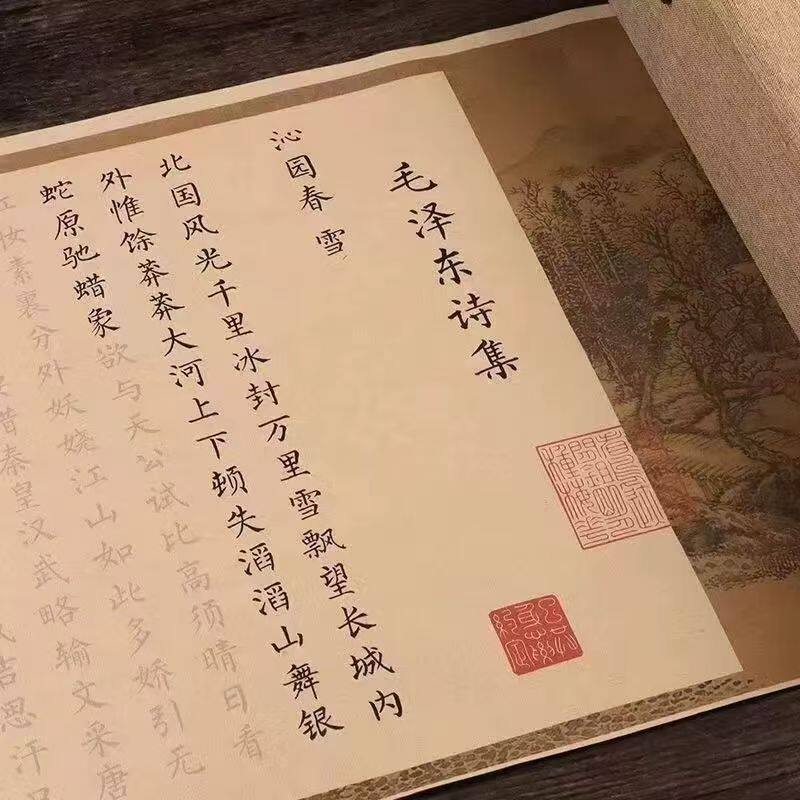 毛泽东诗集
沁园春 雪
北国风光千里冰封万里雪飘望长城内
外惟馀莽莽大河上下顿失滔滔山舞银
蛇原驰蜡象欲与天公试比高须晴日看
红妆素裹分外妖娆江山如此多娇引无
惜秦皇汉武略输文采唐
成吉思汗只